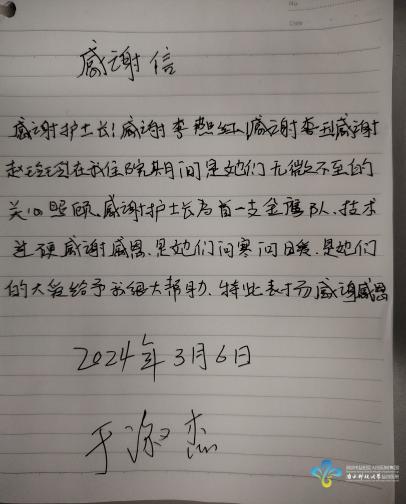 No
Date
感谢信
感谢护士长!感谢李燕红感谢李玉感谢
赵玲玲在我住院期间是她们无微不至的
关心照顾.感谢护士长为首一支金鹰队.技术
过硬感谢感恩.是她们问寒问暖.是她们
的大爱给予我很大帮助.特此表扬感谢感恩
2024年3月6日
于淑杰